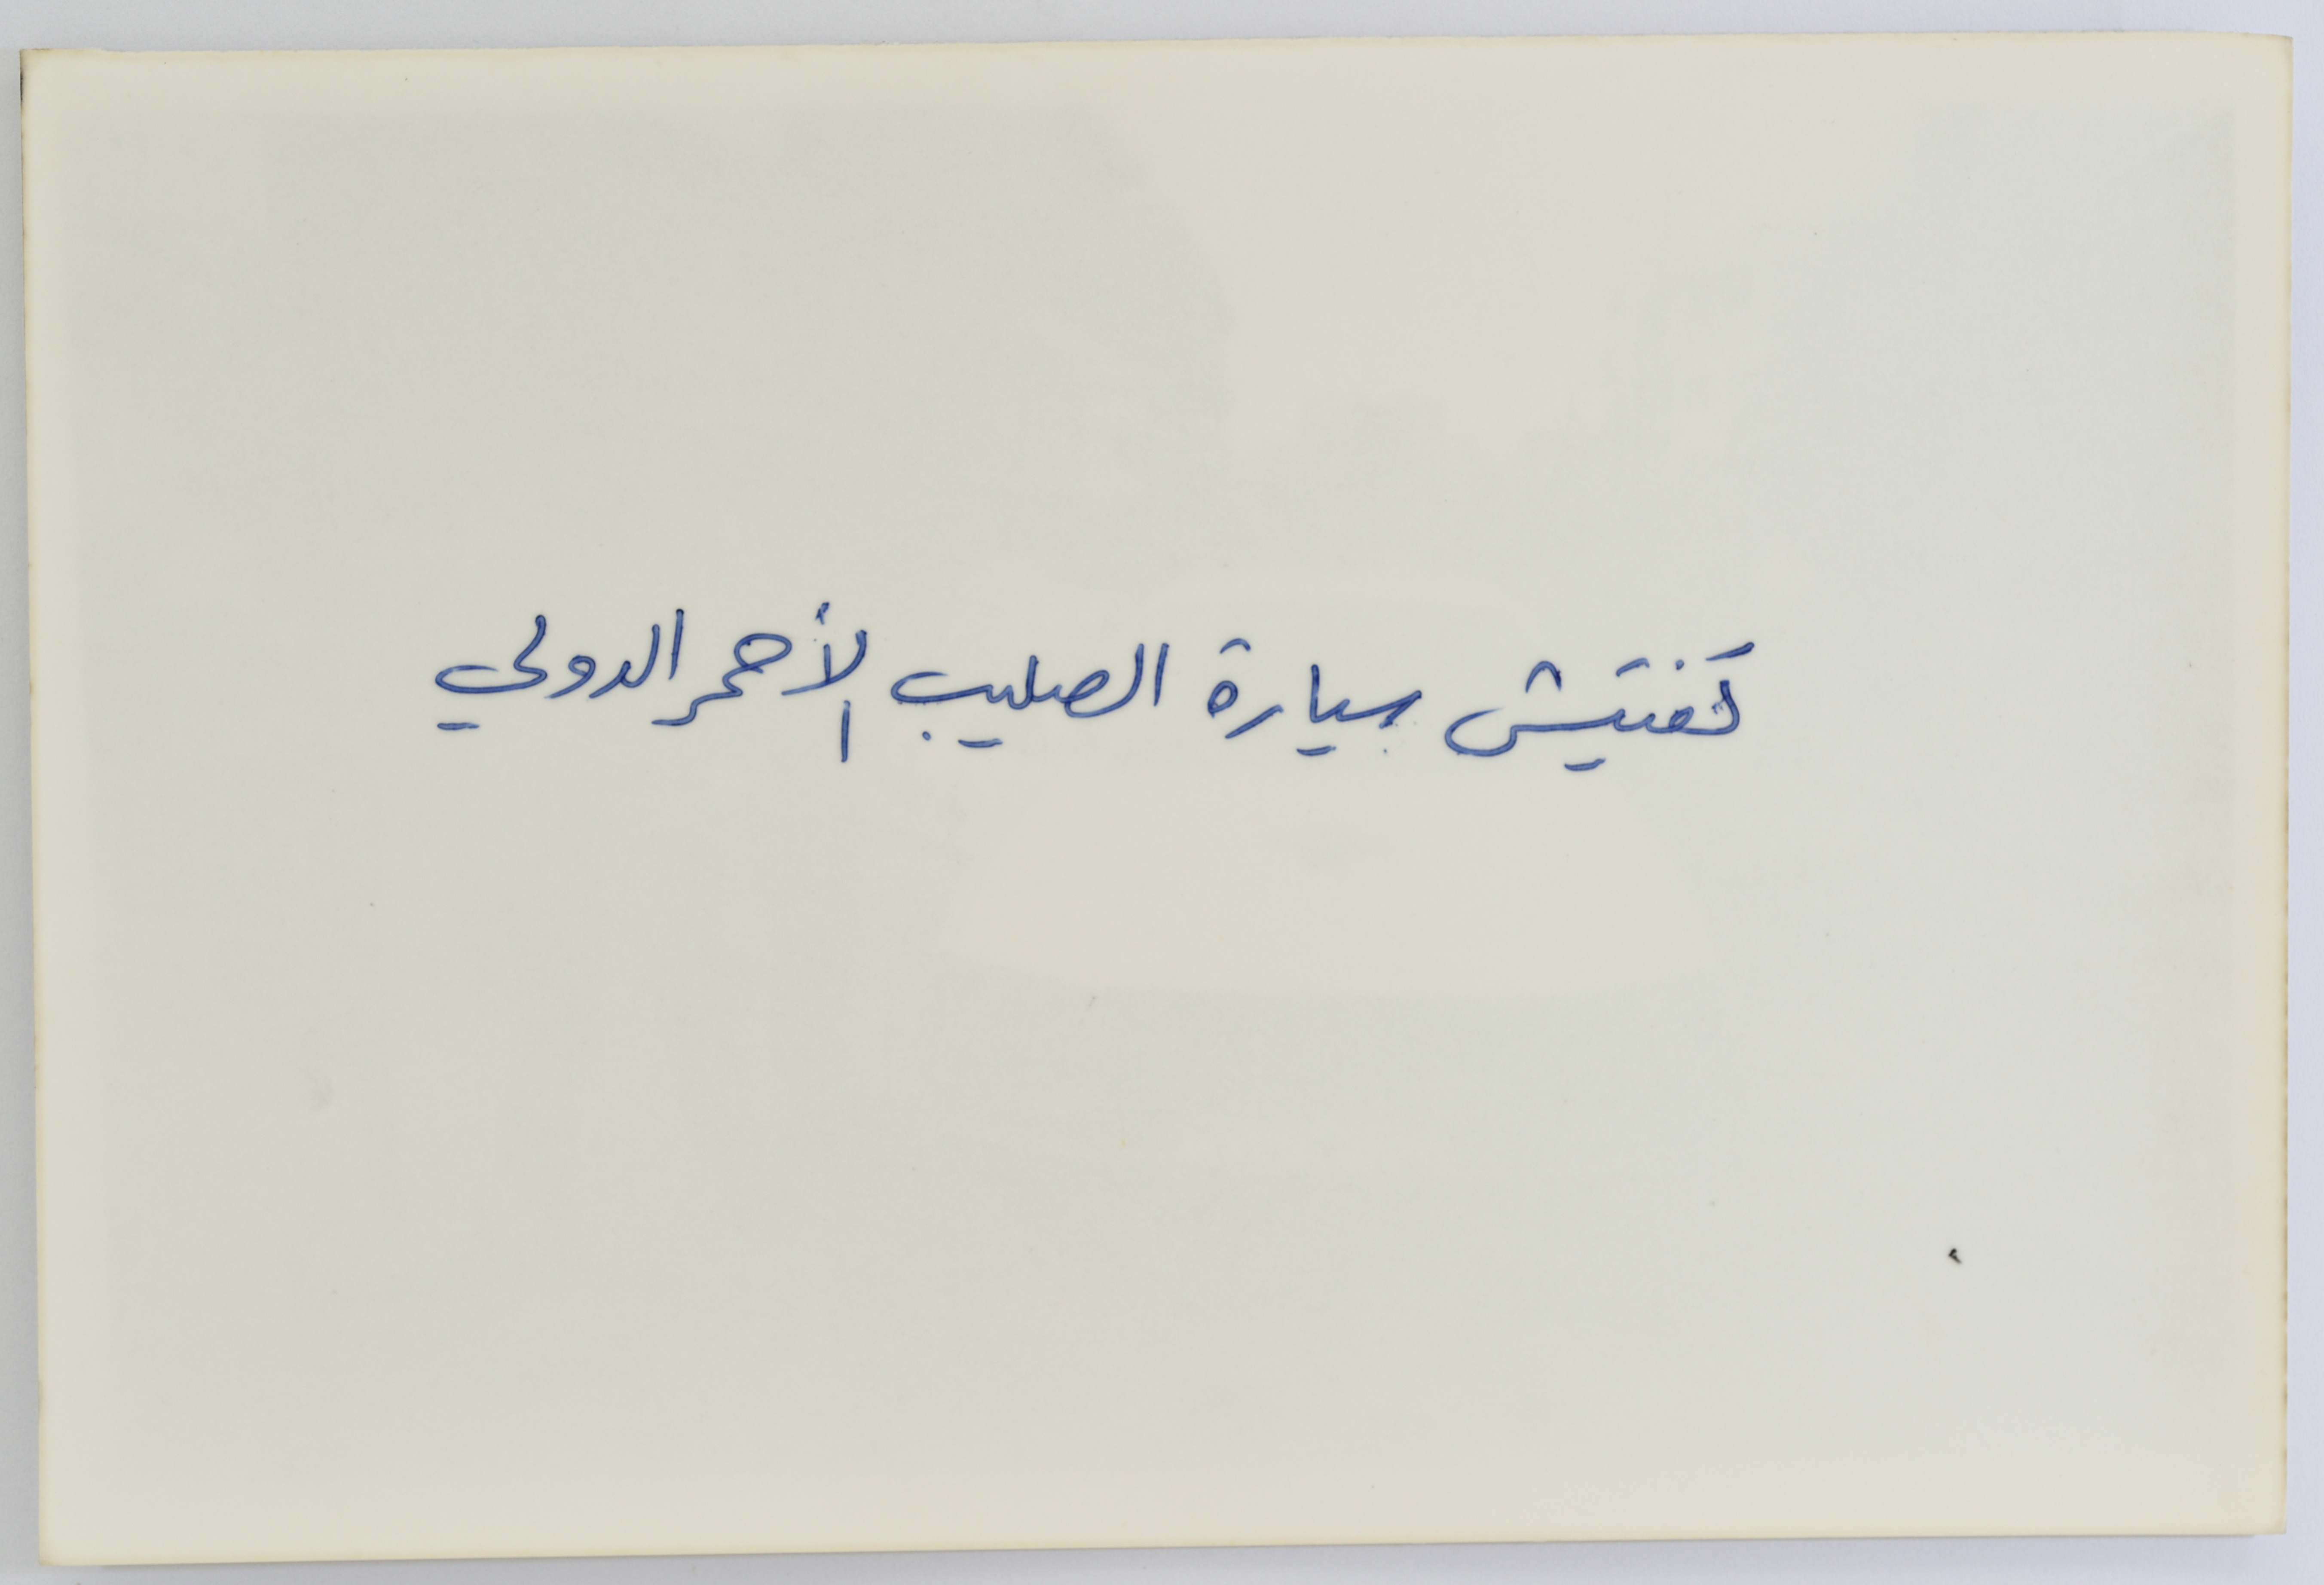 تفتيش سيارة الصليب الأحمر الدولي